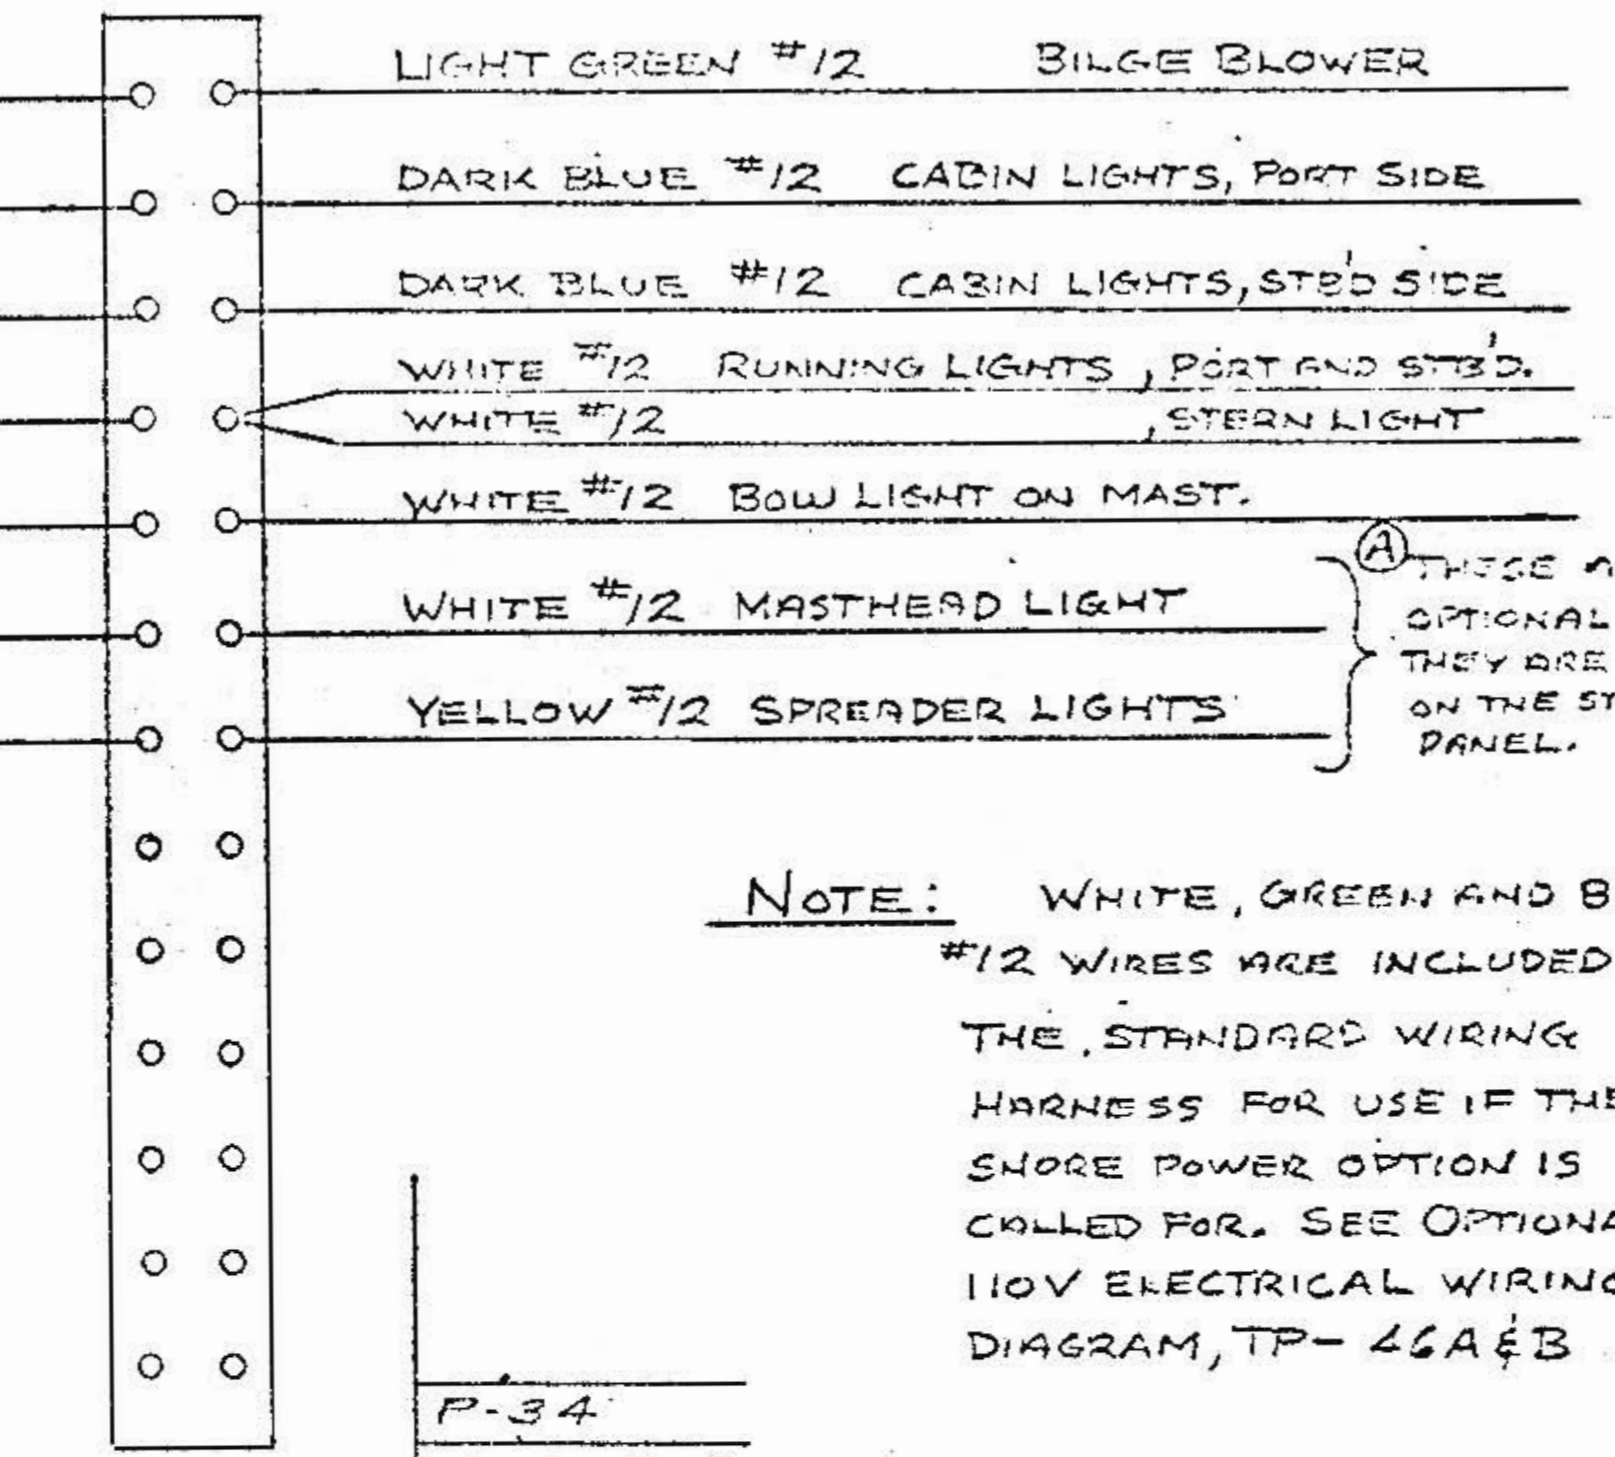 LIGHT GREEN #12 BILGE BLOWER
DARK BLUE #12 CABIN LIGHTS, PORT SIDE
DARK BLUE #12 CABIN LIGHTS, STB'D SIDE
WHITE #12 RUNNING LIGHTS, PORT AND STB'D.
WHITE #12 , STERN LIGHT
WHITE #12 BOW LIGHT ON MAST.
WHITE #12 MASTHEAD LIGHT
YELLOW #12 SPREADER LIGHTS
A
THESE
OPTIONAL
THEY ARE
ON THE ST
PANEL.
NOTE: WHITE, GREEN AND B
#12 WIRES ARE INCLUDED
THE STANDARD WIRING
HARNESS FOR USE IF THE
SHORE POWER OPTION IS
CALLED FOR. SEE OPTIONA
110V ELECTRICAL WIRING
DIAGRAM, TP-46A & B
P-34